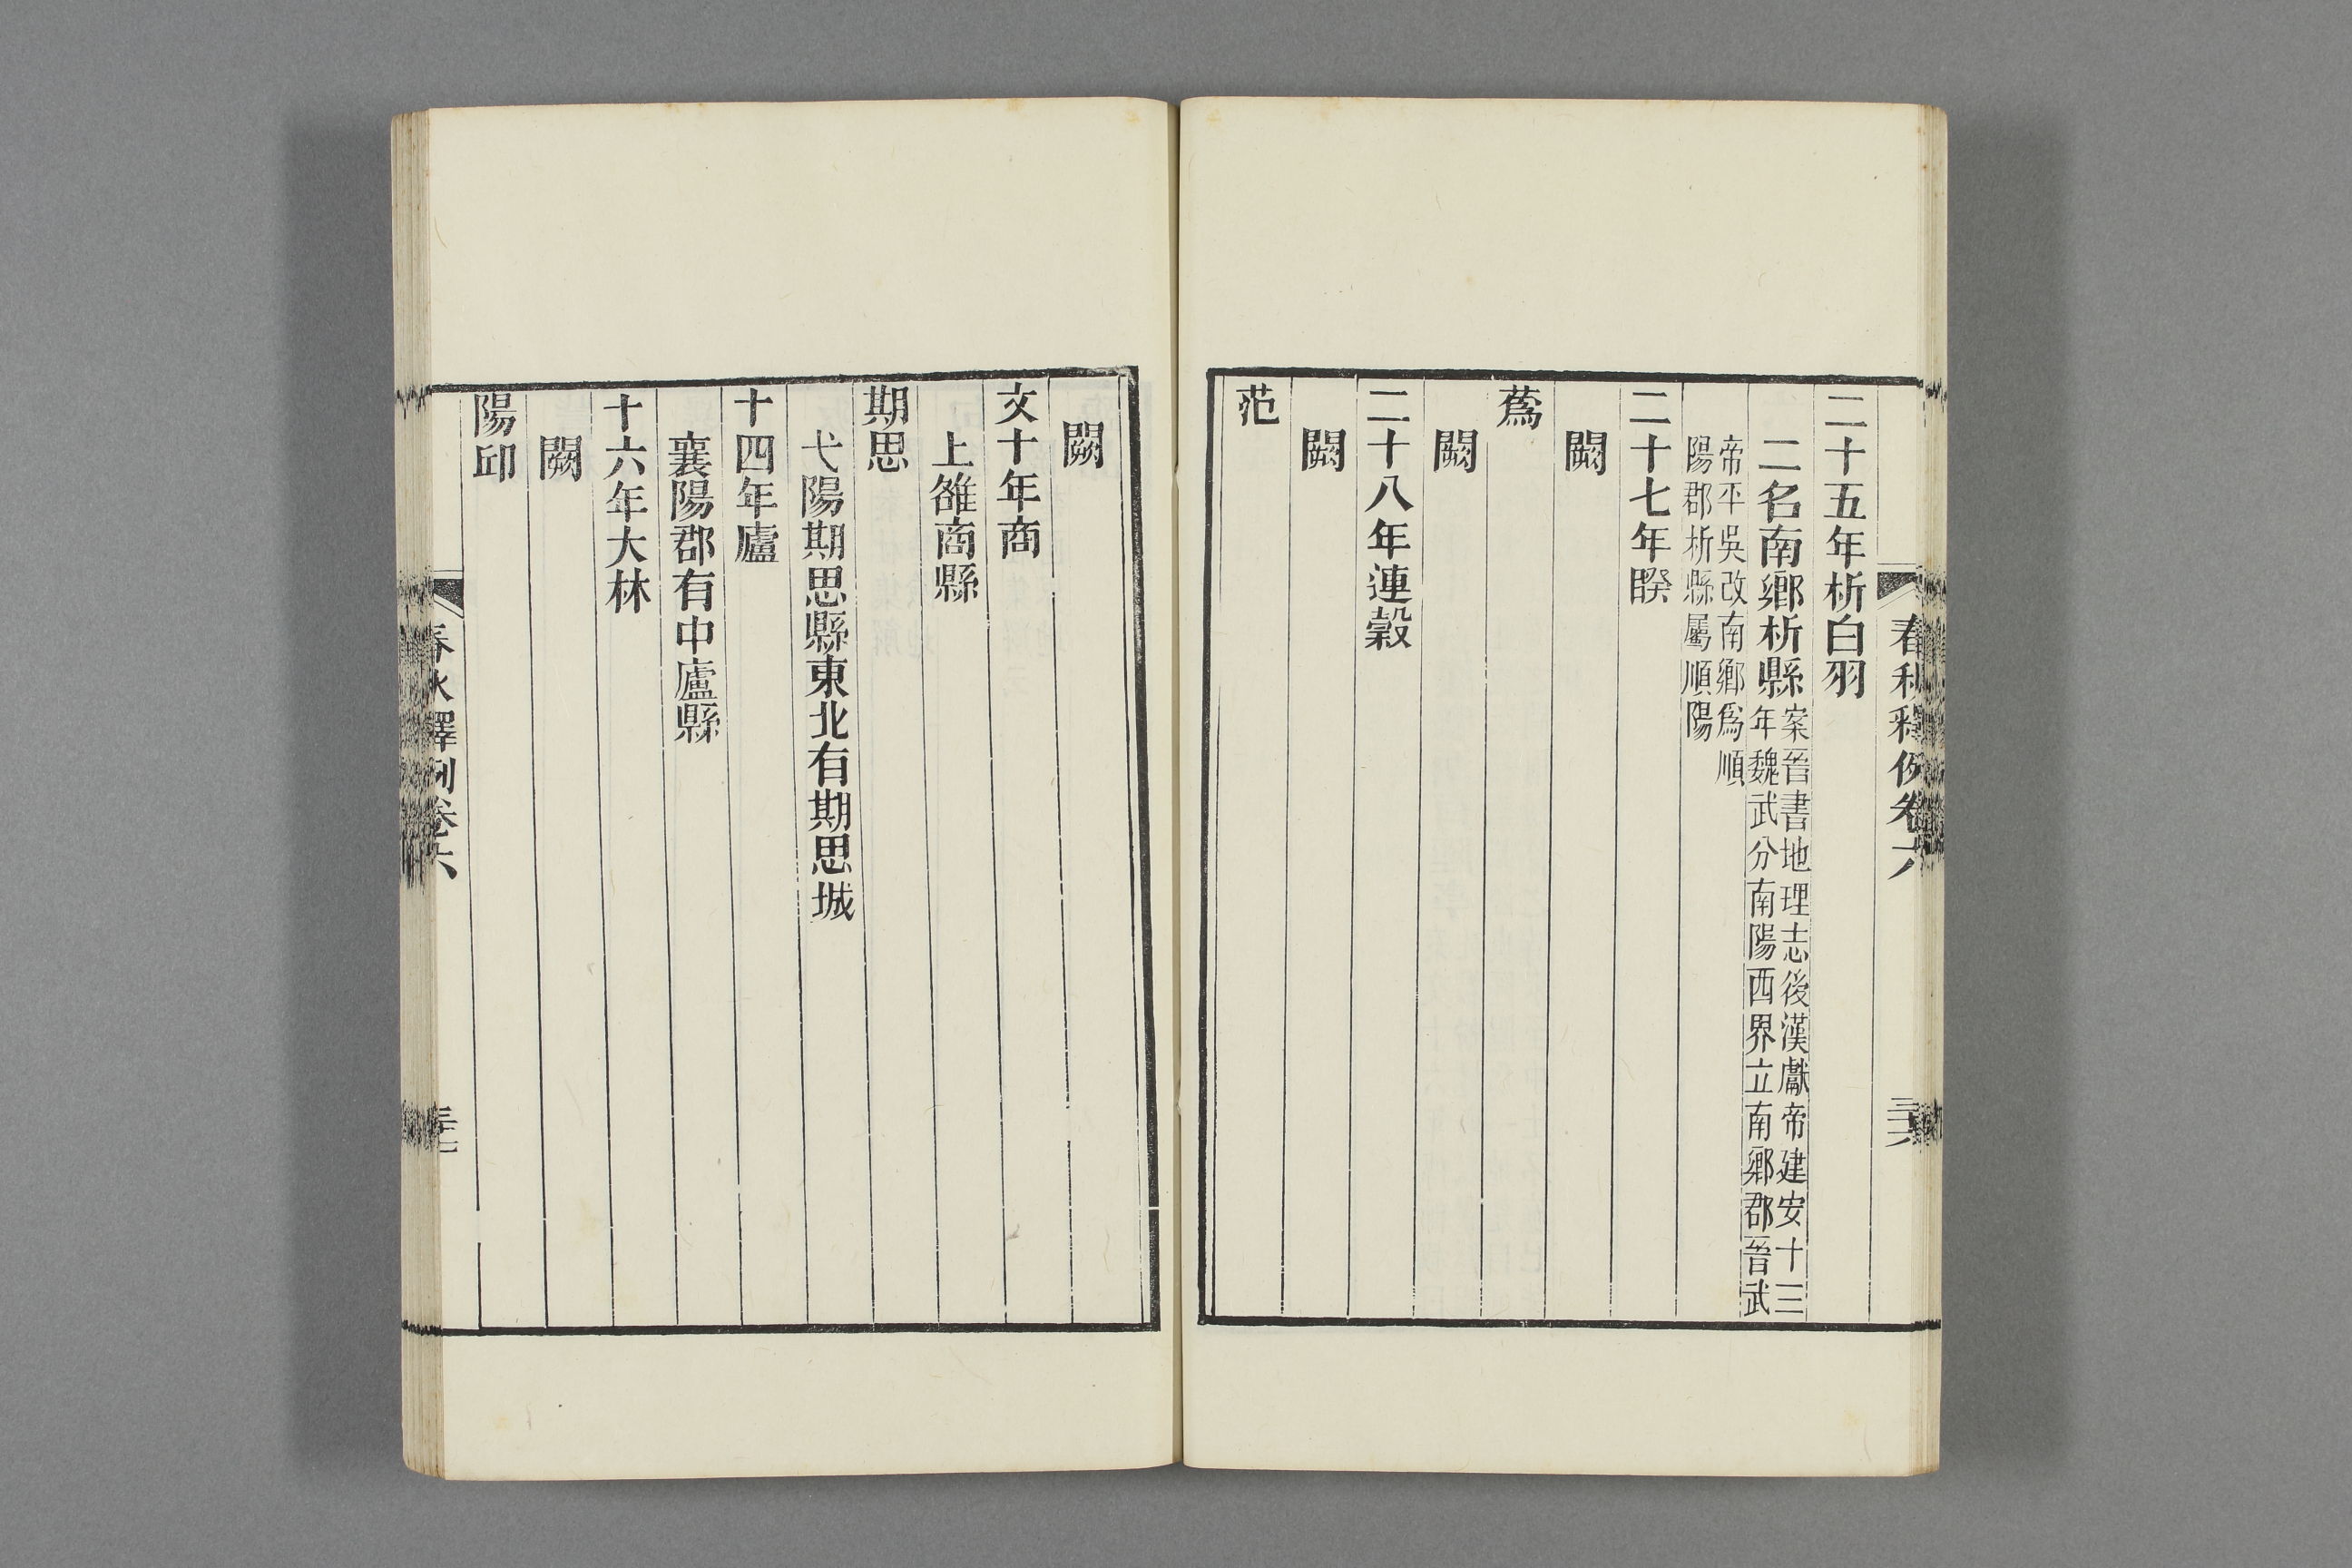 春秋釋例卷六
三十六
二十五年析白羽
二名南鄉析縣案晉書地理志後漢獻帝建安十三
年魏武分南陽西界立南鄉郡晉武
帝平吳改南鄉爲順
陽郡析縣屬順陽
二十七年睽
闕
蔿
闕
二十八年連榖
闕
范
闕
文十年商
上雒商縣
期思
弋陽期思縣東北有期思城
十四年廬
襄陽郡有中廬縣
十六年大林
闕
陽邱
春秋釋例卷六
三十七